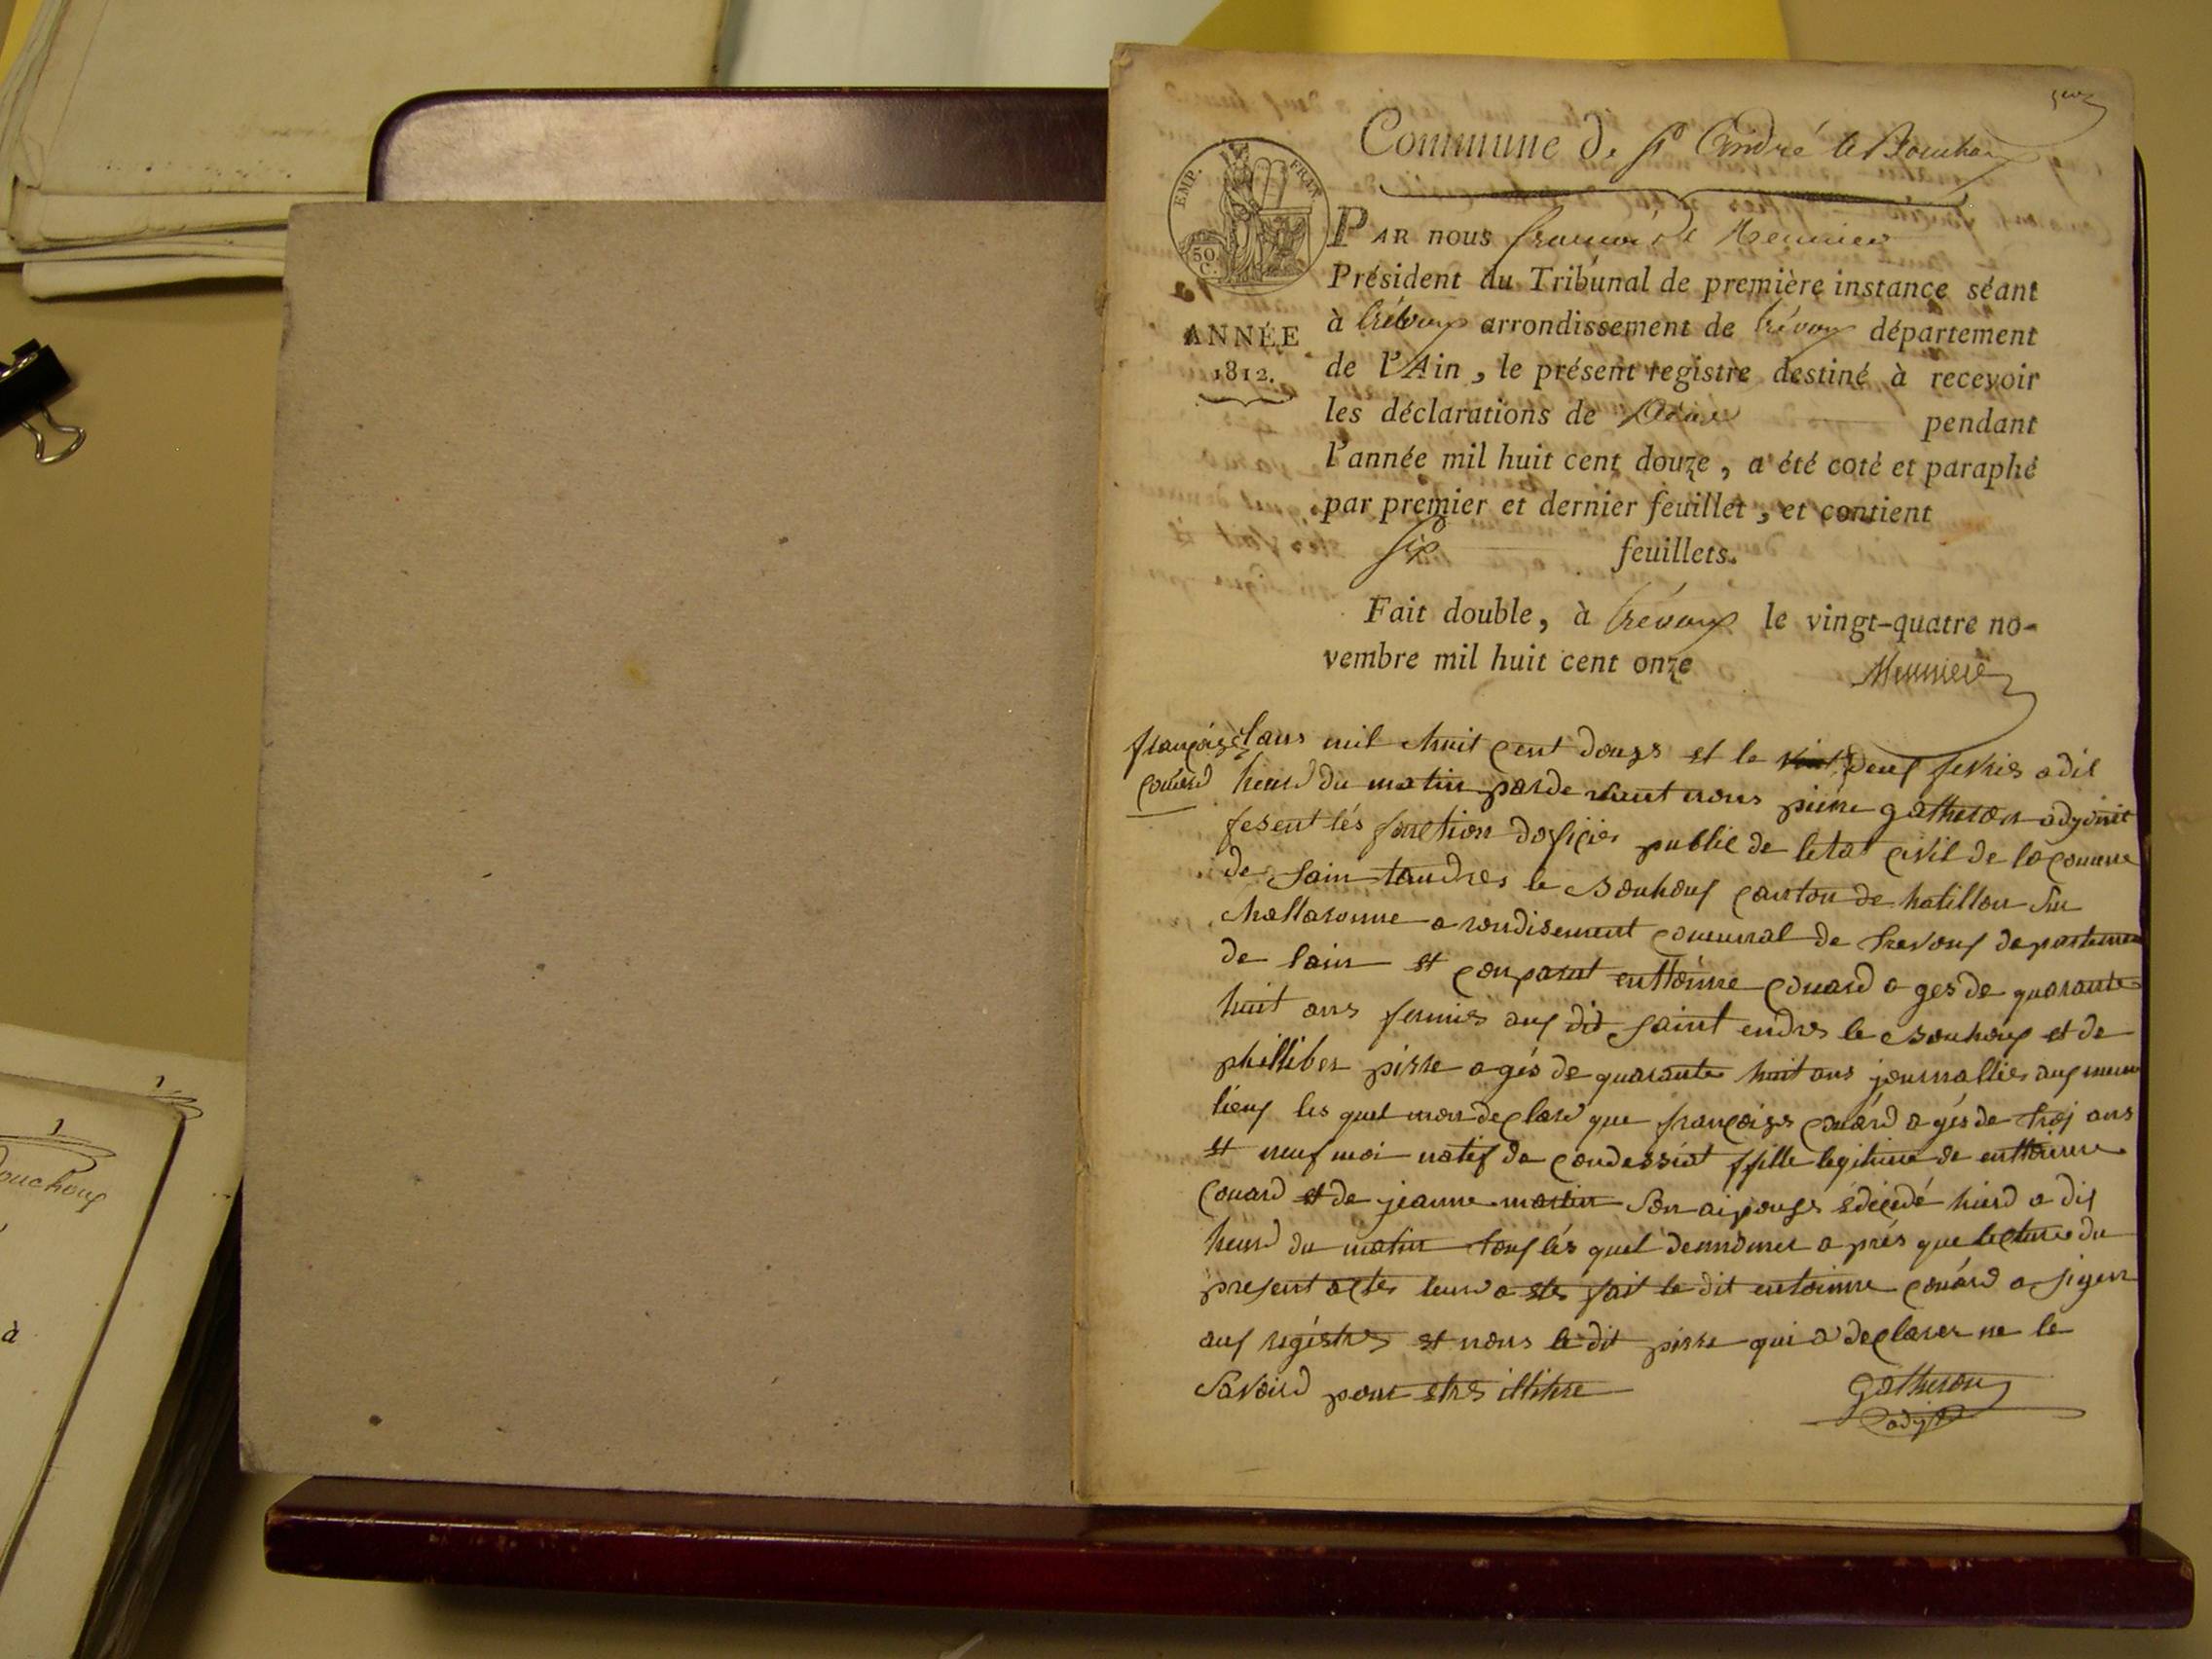 Commune de St André le Bouchoux
EMP. FRAN.
50 C.
ANNÉE
1812.
PAR nous françois Meunier
Président du Tribunal de première instance séant
à trévoux arrondissement de trévoux département
de l'Ain, le présent registre destiné à recevoir
les déclarations de Décès pendant
l'année mil huit cent douze, a été coté et paraphé
par premier et dernier feuillet, et contient
six feuillets.
Fait double, à trévoux le vingt-quatre no-
vembre mil huit cent onze
Meunier
françoise
couard
lans mil huit cent douze et le deux fevrier a dix
heurs du matin parde vant nous pierre gatheron adjoint
fesent lés fonction doficier publie de letat civil de la comune
de sain tandres le Bouhoux canton de hatillon sur
challaronne a rondisement comunal de trevoux departement
de lain et conparut enttoinne couard a ges de quarante
huit ans fermier aux dit saint endre le Bouhoux et de
philliber pirre a gés de quarante huit ans journallier aux meme
lieux les quel mon declaré que françoise couard a gés de troi ans
et neuf moi natif de condessiat ffille legitime de enttoinne
couard et de jeanne martin son aipouse édécédé hierd a dix
heurd du matin lés quel a prés que lecture du
present acte leurd a eté fait le dit entoinne couard a signer
aux régistre et nons le dit pirre qui a declarer ne le
savoird pour etre illitere
Gatheron
adjt
ouchoux
à